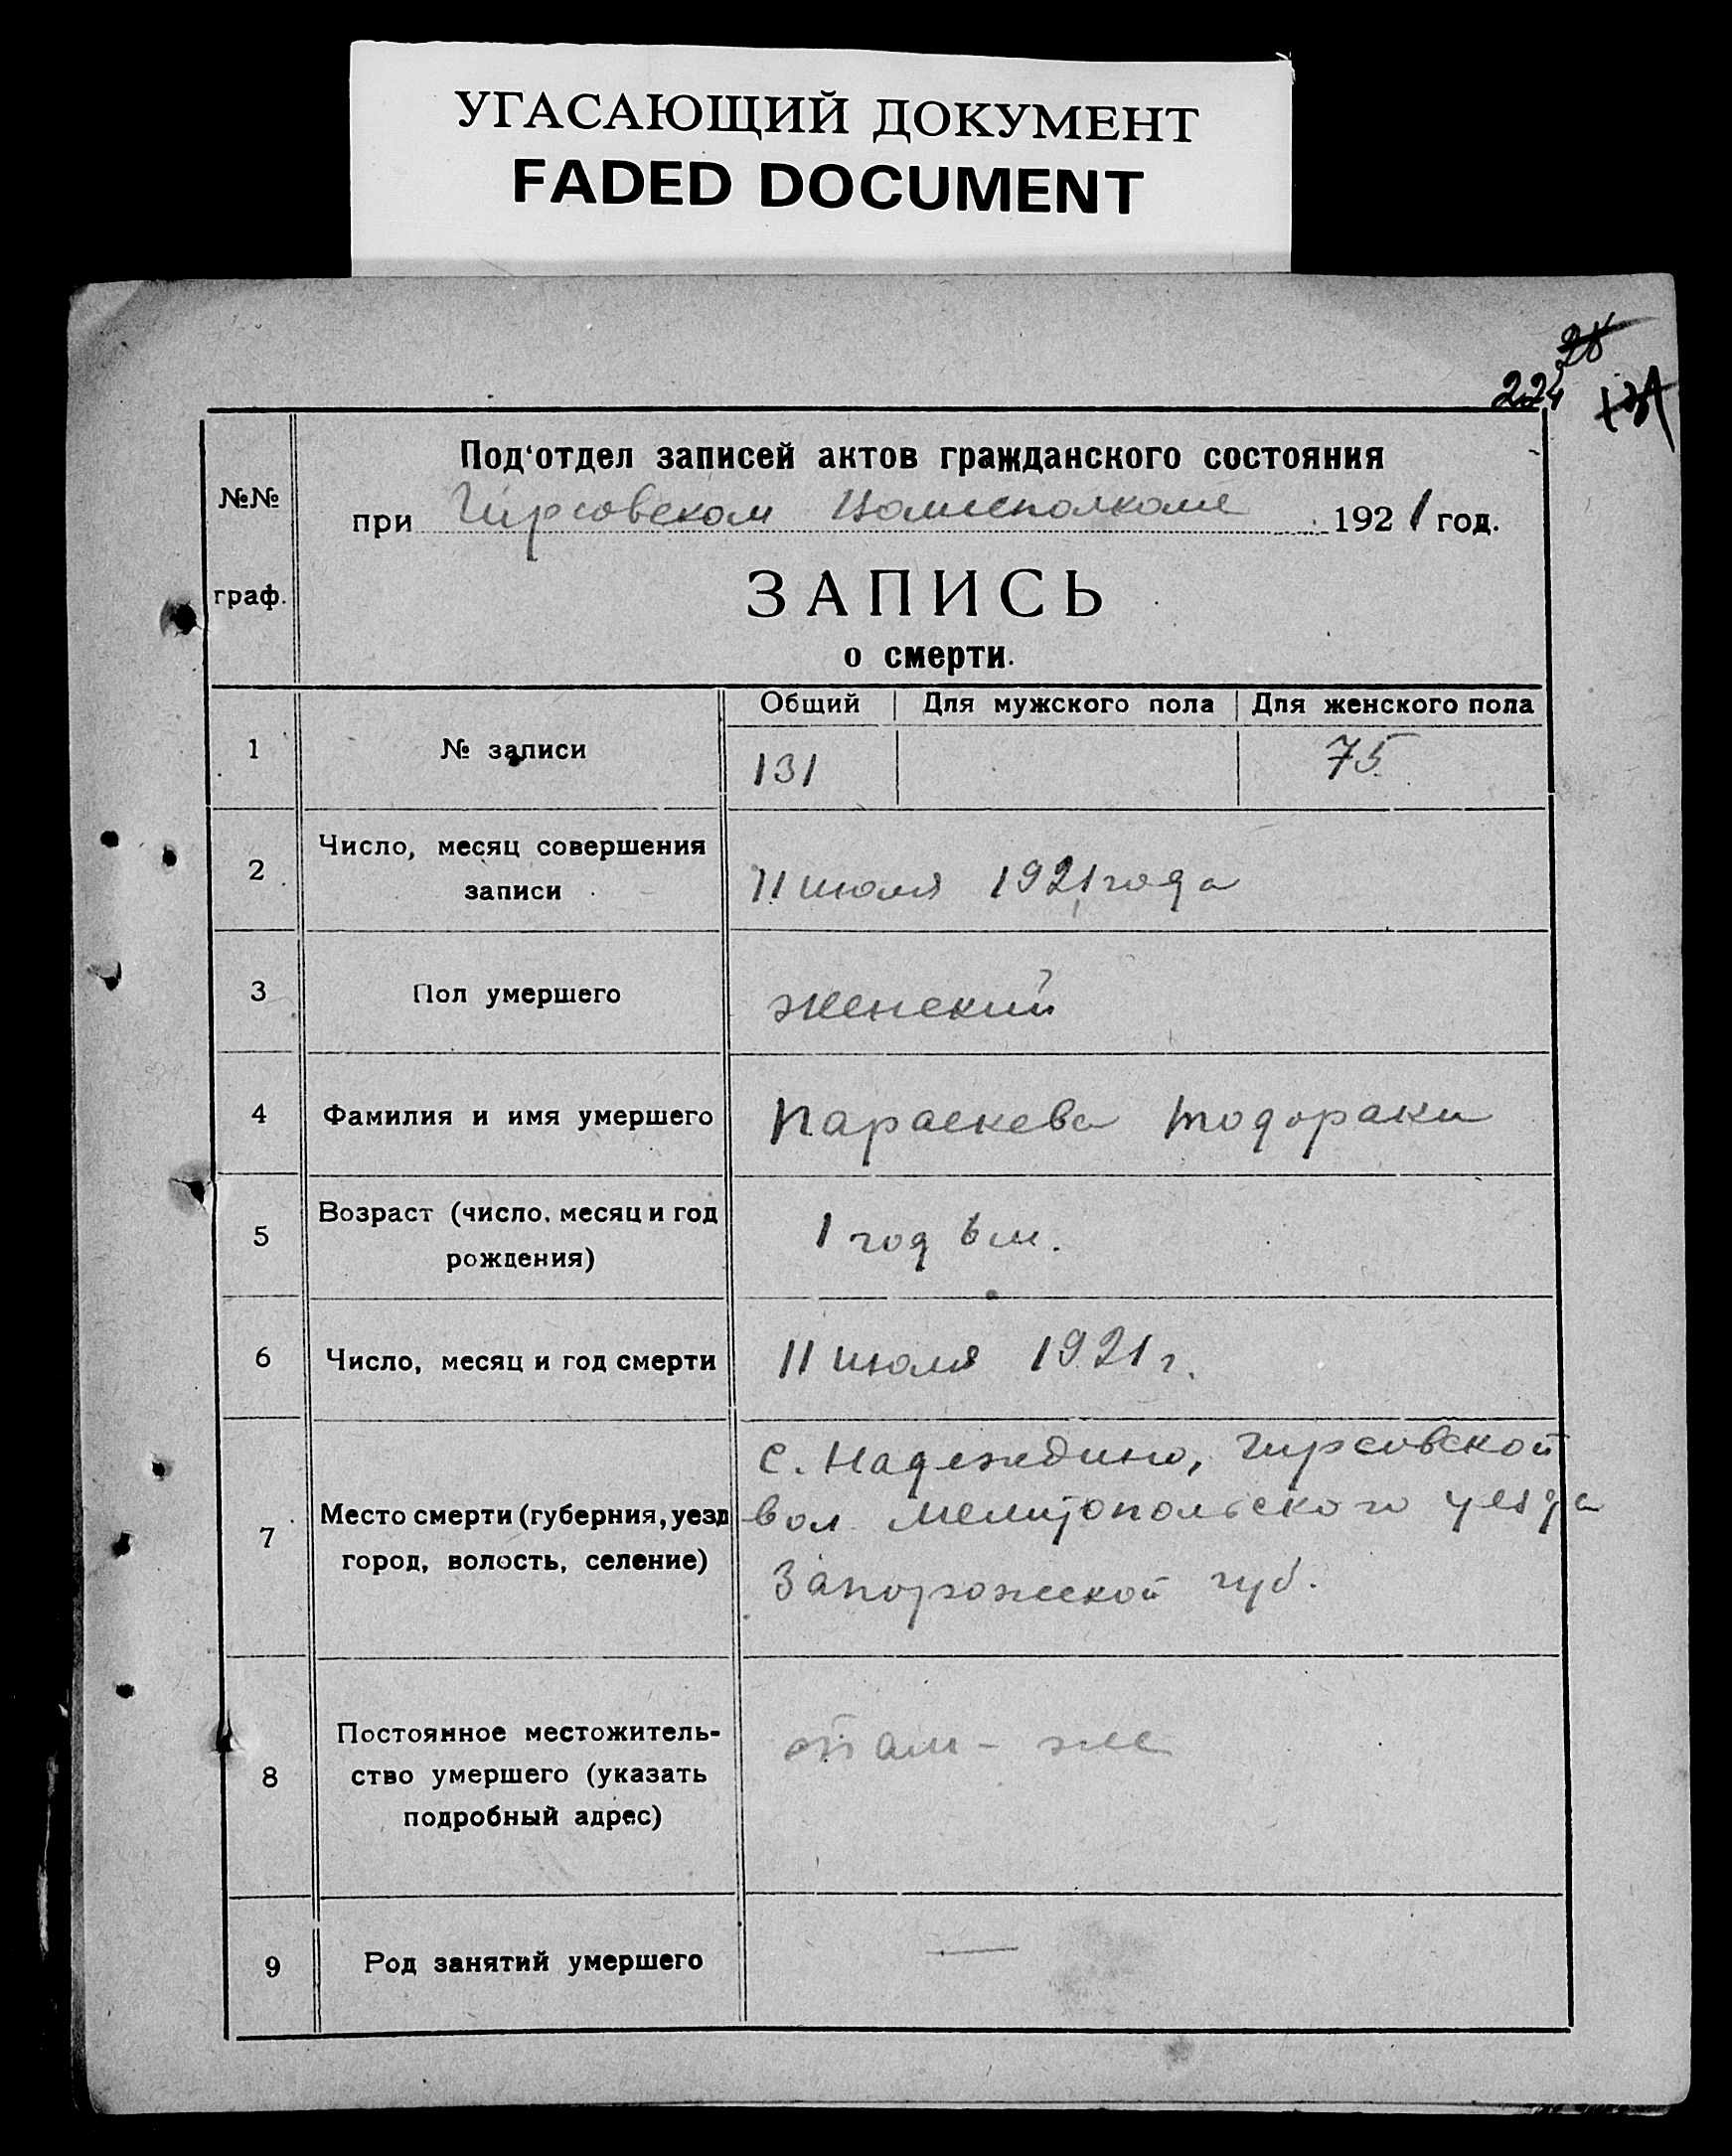 УГАСАЮЩИЙ ДОКУМЕНТ
FADED DOCUMENT
28
224
№№
граф.
Под‘отдел записей актов гражданского состояния
при Гирсовском Волисполкоме 1921 год.
ЗАПИСЬ
о смерти.
Общий Для мужского пола Для женского пола
1 № записи 131 75
2 Число, месяц совершения
записи
11 июля 1921 года
3 Пол умершего женский
4 Фамилия и имя умершего Параскева Тодораки
5 Возраст (число, месяц и год
рождения)
1 год 6 м.
6 Число, месяц и год смерти 11 июля 1921 г.
7 Место смерти (губерния, уезд
город, волость, селение)
с. Надеждино, Гирсовской
вол. Мелитопольского уезда
Запорожской губ.
8 Постоянное местожитель-
ство умершего (указать
подробный адрес)
там - же
9 Род занятий умершего —